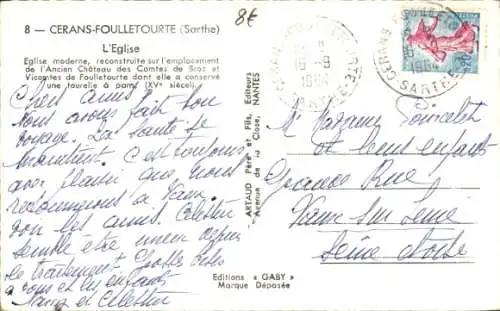 8 — CERANS-FOULLETOURTE (Sarthe)
8€
L'Eglise
Eglise moderne, reconstruite sur l'emplacement
de l'Ancien Château des Comtes de Broc et
Vicomtes de Foulletourte dont elle a conservé
une tourelle à pans (XVe siècle).
Chers amis
Nous avons fait bon
voyage. La santé se
maintient. C'est toujours
avec plaisir que nous
retournerons à Vaux
voir les amis. Célestin
semble être mieux depuis
le traitement
à vous et les enfants
et Célestin
ARTAUD Père et Fils, Editeurs
Avenue de la Close, NANTES
Editions « GABY »
Marque Déposée
16-9
CERANS
SARTHE
Mr Madame
et leurs enfants
Grande Rue
Vaux sur Seine
Seine et Oise